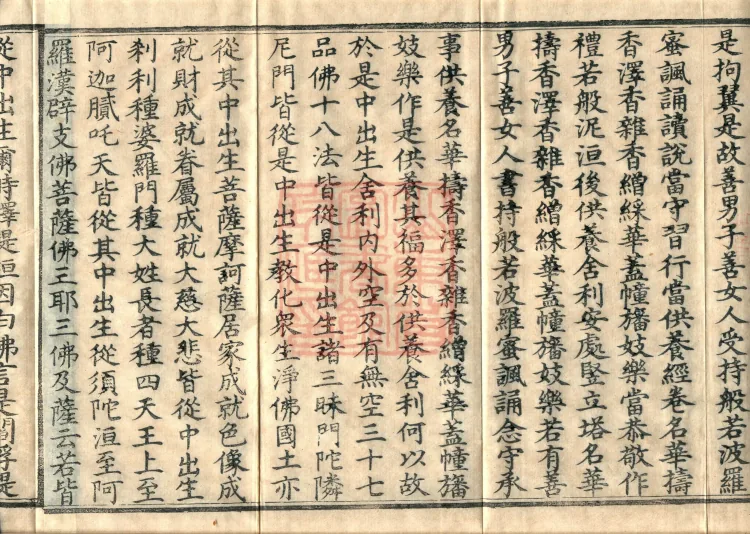 是拘翼是故善男子善女人受持般若波羅
蜜諷誦讀說當守習行當供養經卷名華擣
香澤香雜香繒綵華蓋幢旛妓樂當恭敬作
禮若般泥洹後供養舍利安處竪立塔名華
擣香澤香雜香繒綵華蓋幢旛妓樂若有善
男子善女人書持般若波羅蜜諷誦念守承
事供養名華擣香澤香雜香繒綵華蓋幢旛
妓樂作是供養其福多於供養舍利何以故
於是中出生舍利內外空及有無空三十七
品佛十八法皆從是中出生諸三昧門陀隣
尼門皆從是中出生教化眾生淨佛國土亦
從其中出生菩薩摩訶薩居家成就色像成
就財成就眷屬成就大慈大悲皆從中出生
刹利種婆羅門種大姓長者種四天王上至
阿迦膩吒天皆從其中出生從須陀洹至阿
羅漢辟支佛菩薩佛三耶三佛及薩云若皆
從中出生爾時釋提桓因白佛言是閻浮提